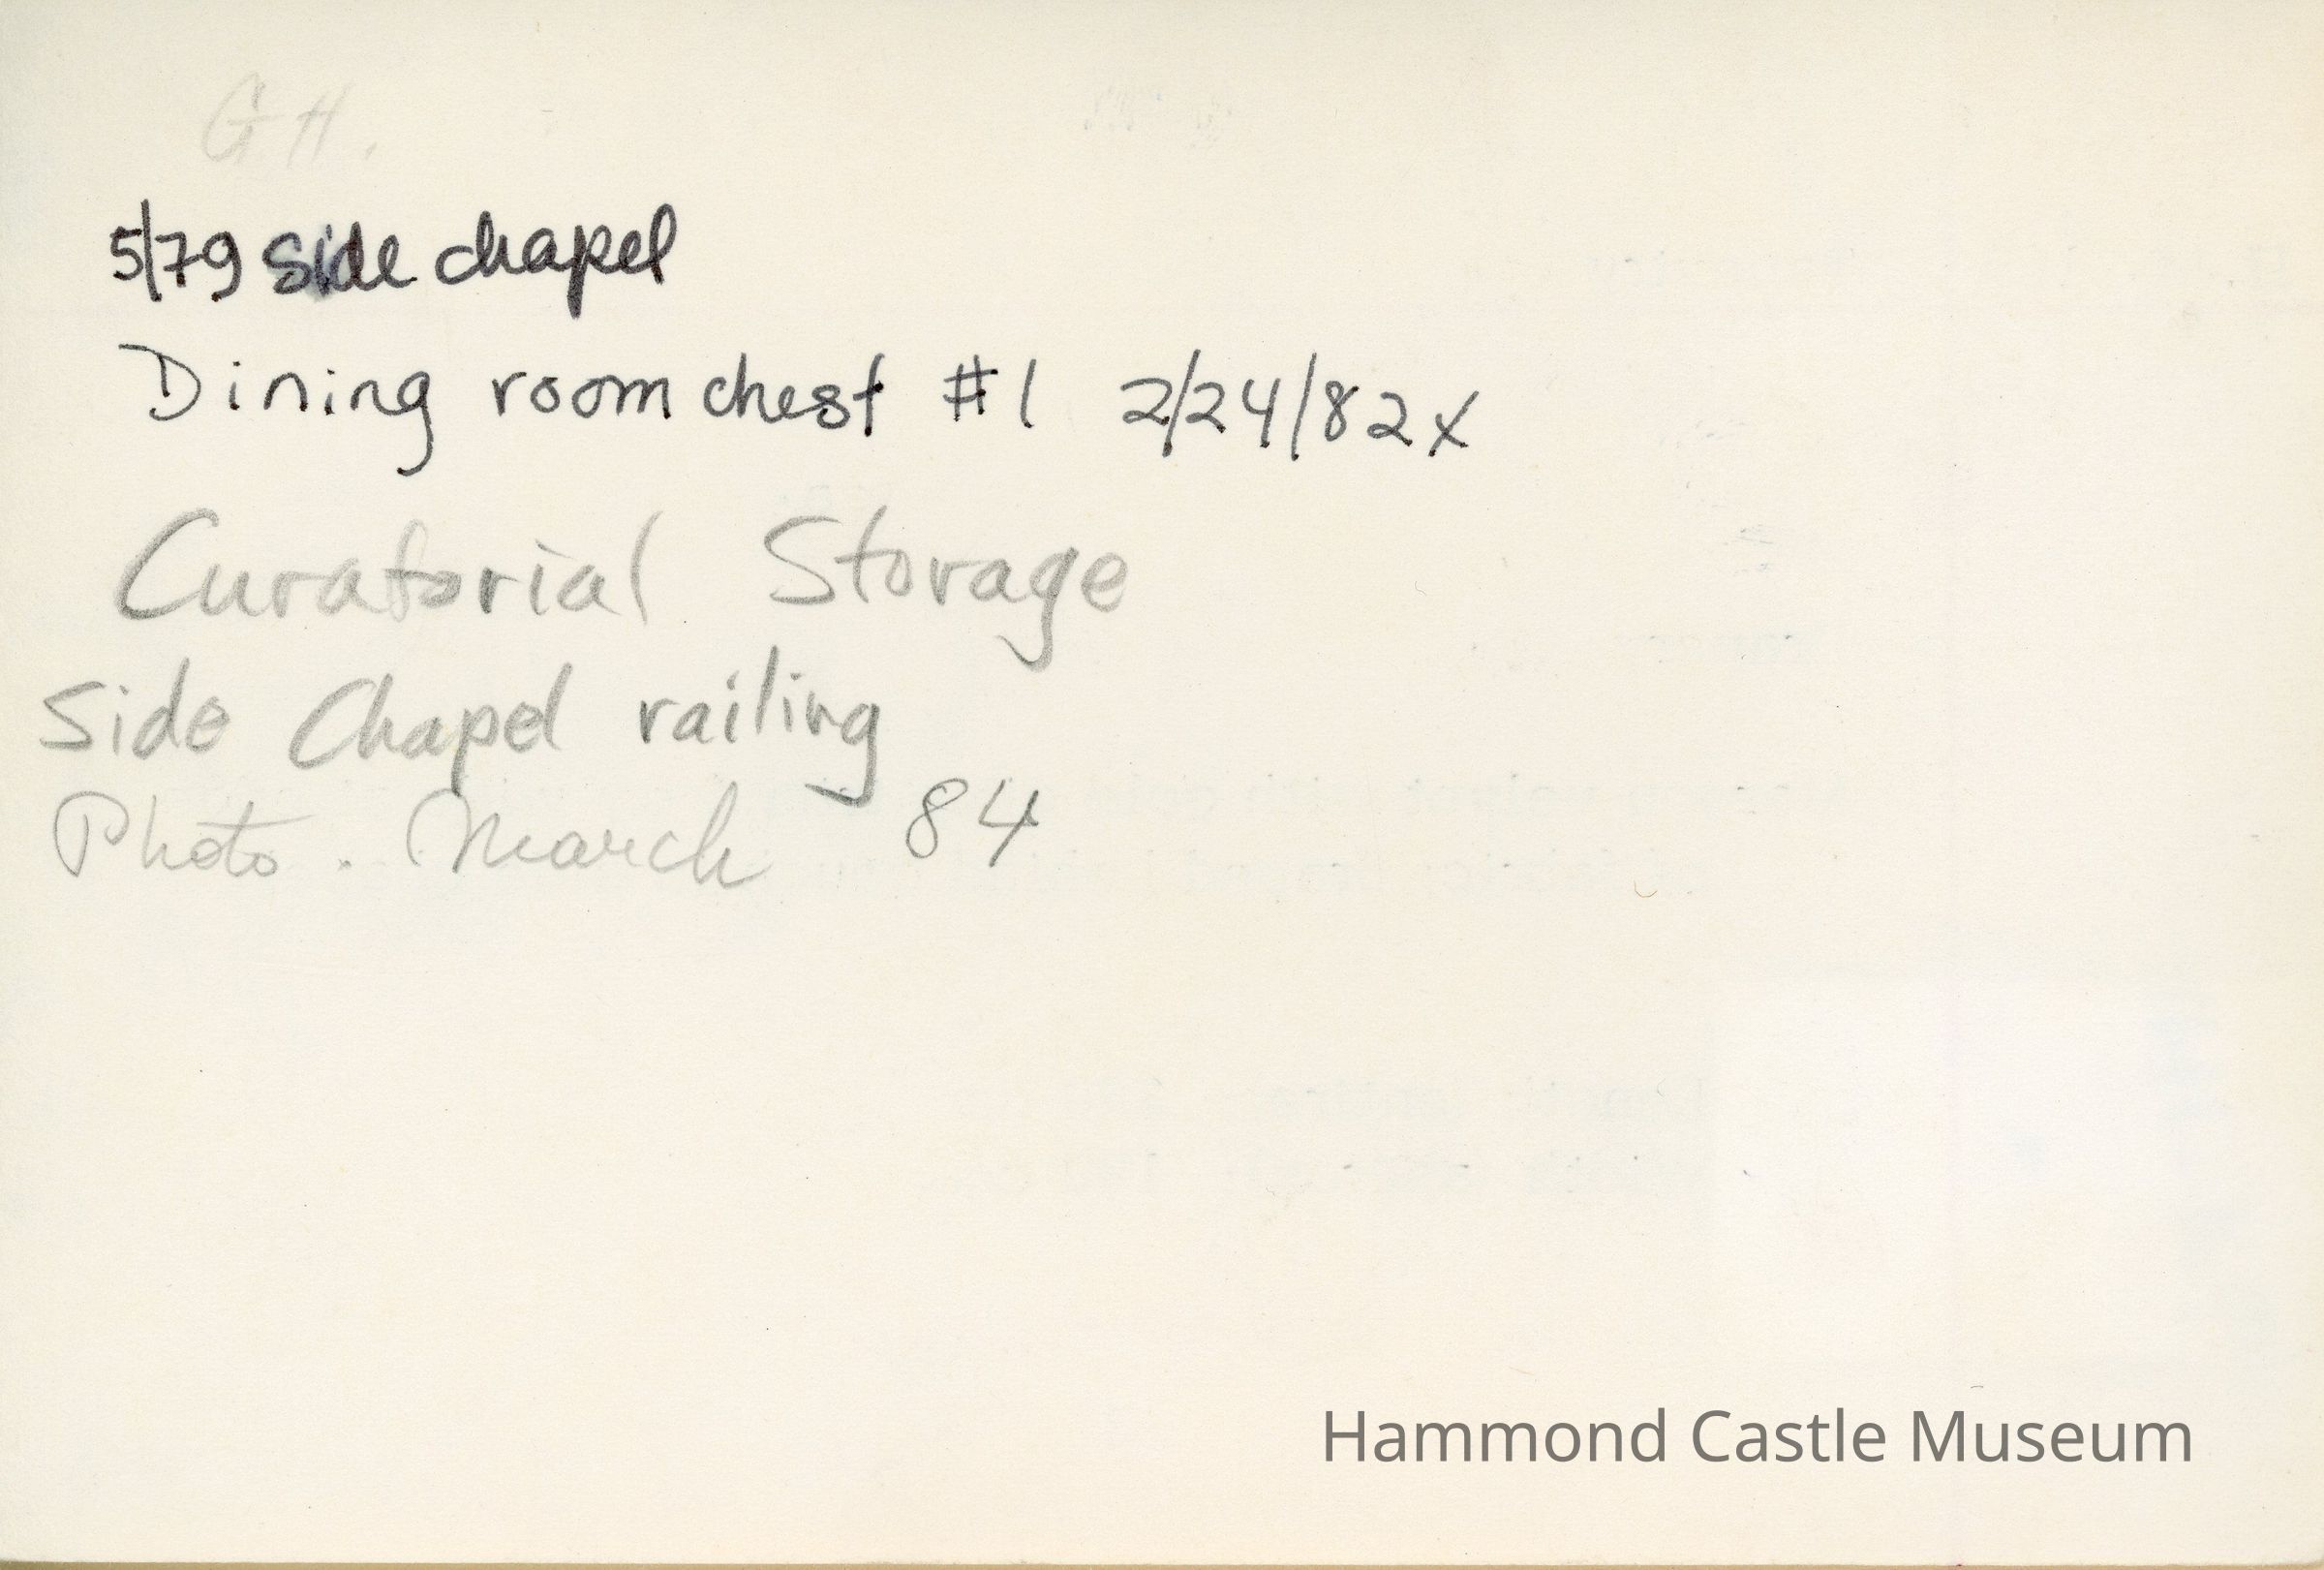 G H.
5/79 side chapel
Dining room chest #1 2/24/82x
Curatorial Storage
Side Chapel railing
Photo. March 84
Hammond Castle Museum